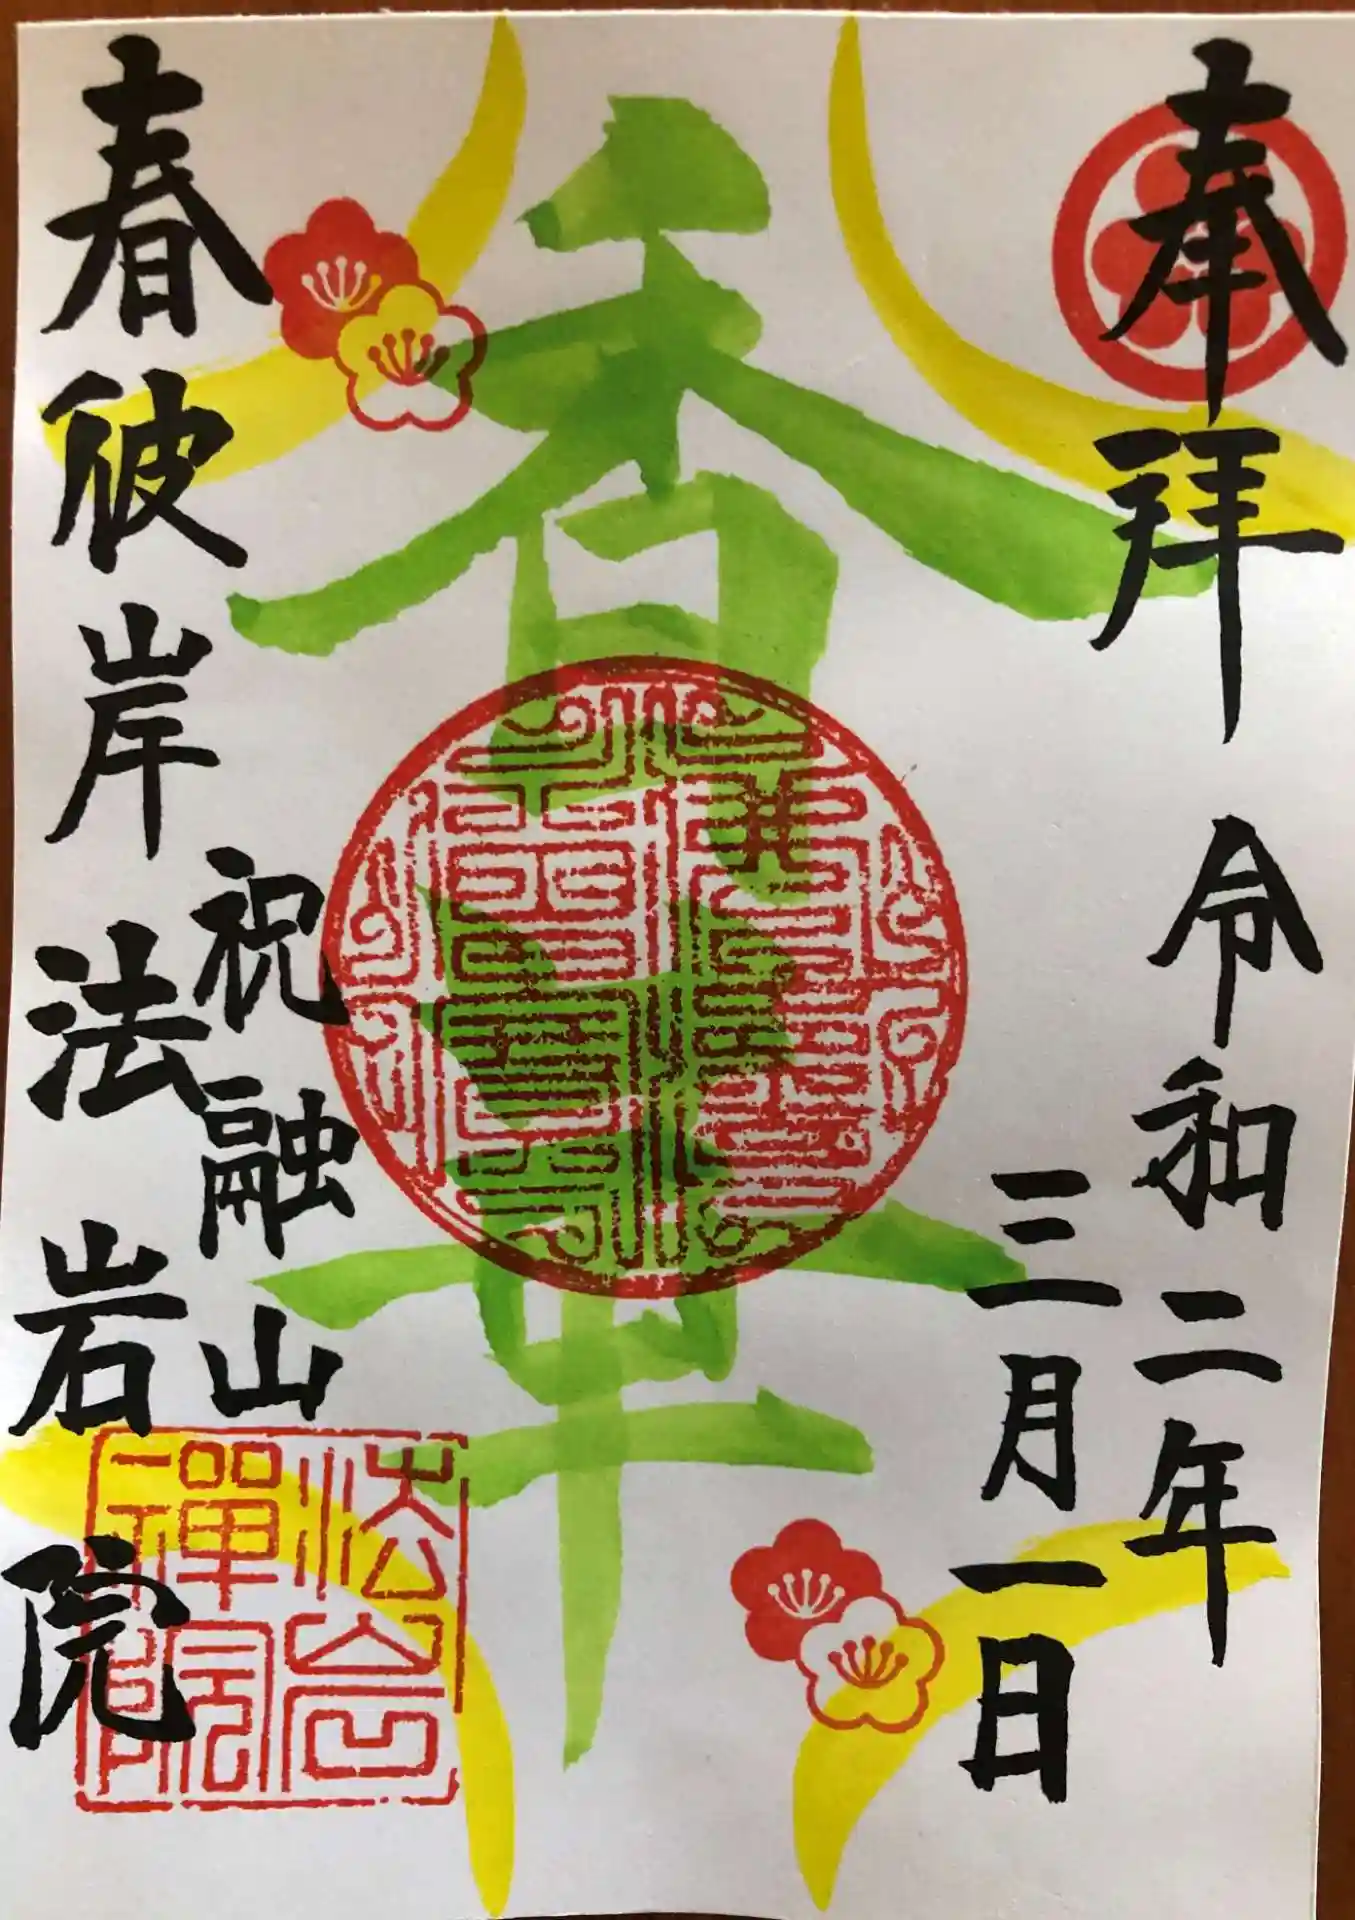 奉拝
令和二年
三月一日
香華
祝融山
春彼岸 法岩院
法岩
禅院